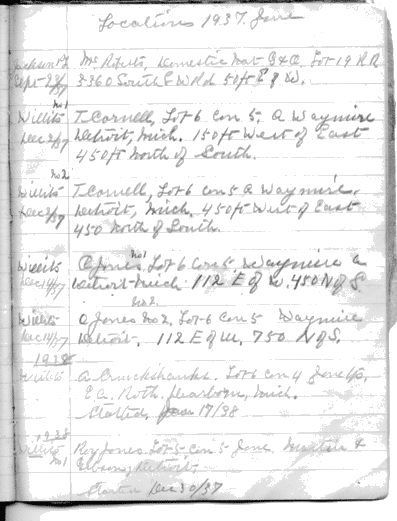 Locations 1937. June
Jackson Mc Roberts, Domestic Nat G & O. Lot 19 R A
Sept 23/37 3360 South E W Rd 50 ft E of W.
no1
Willits T. Cornell, Lot 6 Con 5, A Waymire
Dec 2/37 Detroit, Mich. 150 ft West of East
450 ft North of South.
no2
Willits T. Cornell, Lot 6 Con 5 A Waymire,
Dec 2/37 Detroit, Mich. 450 ft West of East
450 North of South
no1
Willits O Jones Lot 6 Con 5. Waymire a
Dec 14/37 Detroit Mich. 112 E of W. 450 N of S
no2.
Willits O Jones No 2, Lot 6 Con 5 Waymire
Dec 14/37 Detroit. 112 E of W, 750 N of S.
1938
Willits A. Cruckshanks. Lot 6 Con 4
E A. Roth. Dearborn, Mich.
Started, Jan 17/38
1938
Willits Roy Jones. Lot 5 Con 5
no1 Detroit.
Started Dec 30/37